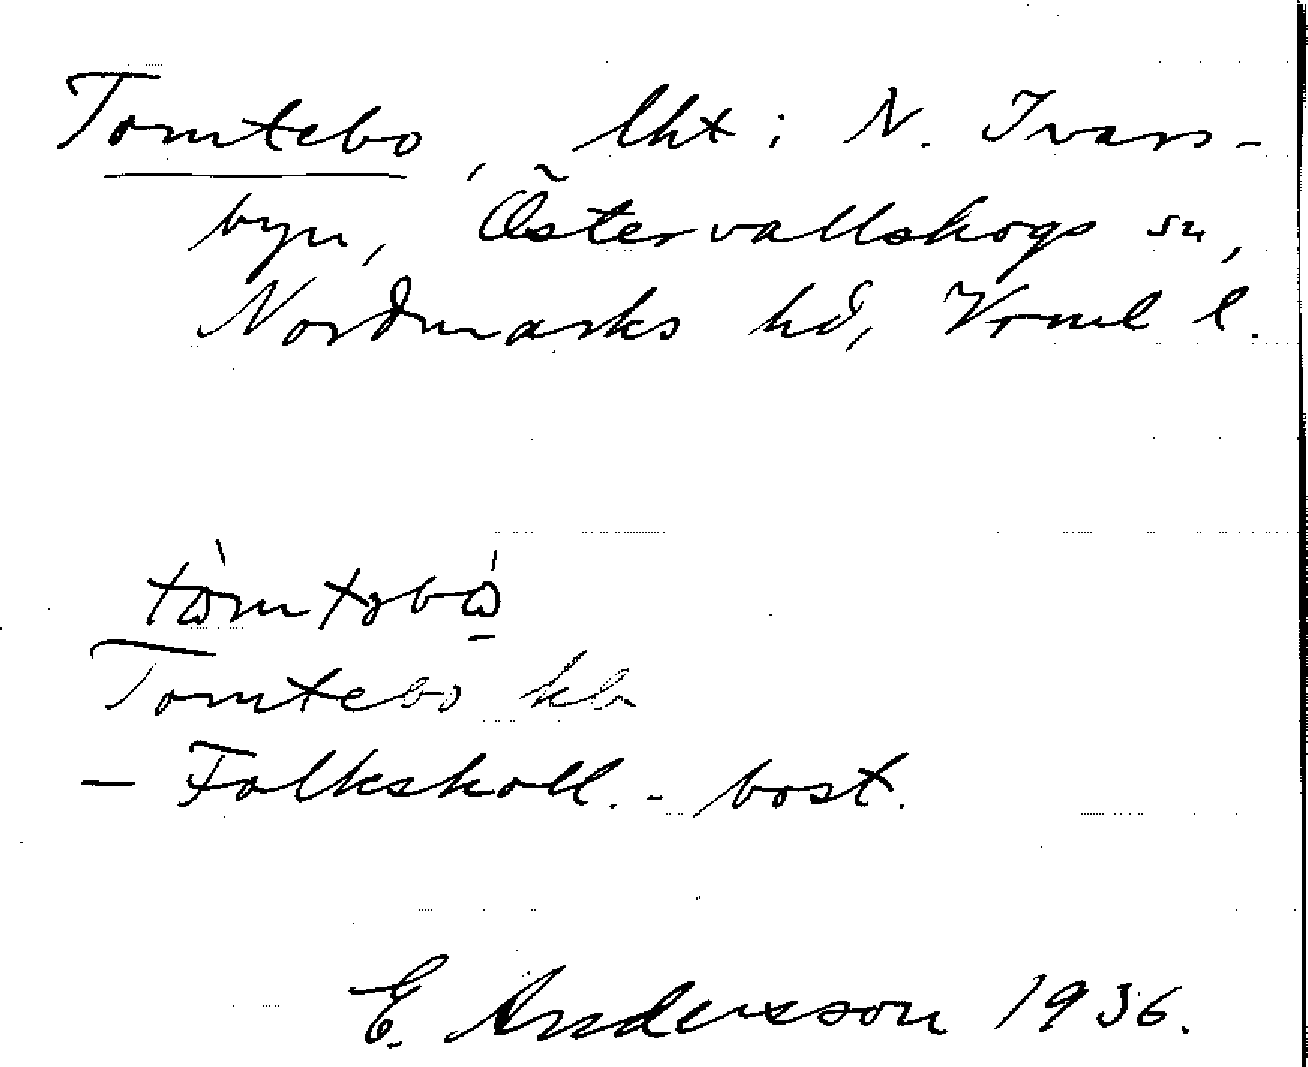 Tomtebo, lht i N. Ivars-
byn, Östervallskogs sn,
Nordmarks hd, Vrml l.
Tomtebo kb
- Folkskoll. - bost.
E. Andersson 1936.